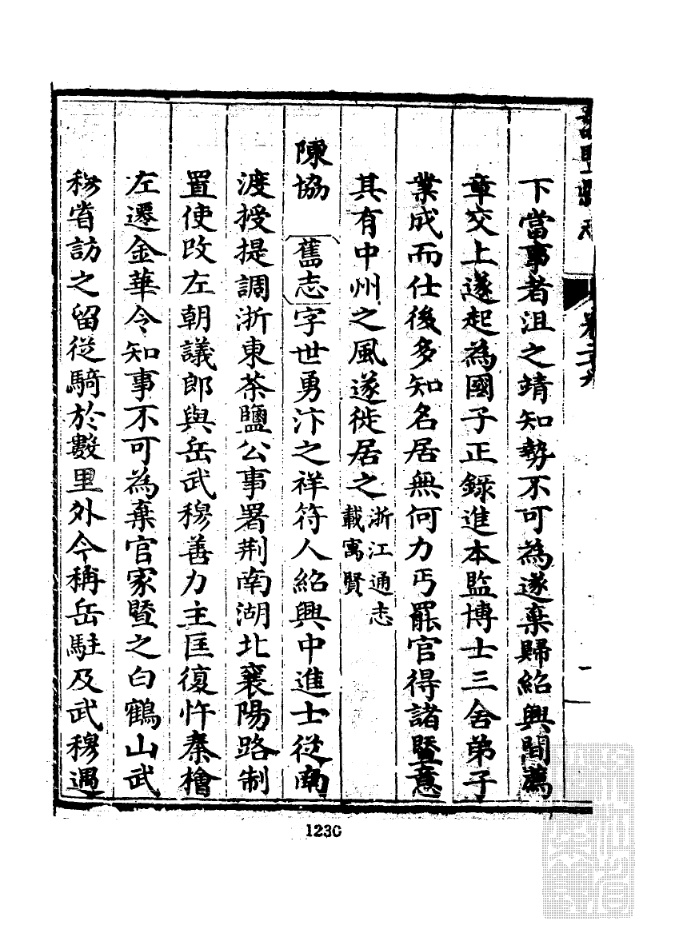 諸暨縣志
卷二十九
下當事者沮之靖知勢不可為遂棄歸紹興間薦
章交上遂起為國子正錄進本監博士三舍弟子
業成而仕後多知名居無何力丐罷官得諸暨意
其有中州之風遂徙居之浙江通志
載寓賢
陳協 舊志字世勇汴之祥符人紹興中進士從南
渡授提調浙東茶鹽公事署荆南湖北襄陽路制
置使改左朝議郎與岳武穆善力主匡復忤秦檜
左遷金華令知事不可為棄官家暨之白鶴山武
穆嘗訪之留從騎於數里外今稱岳駐及武穆遇
1230